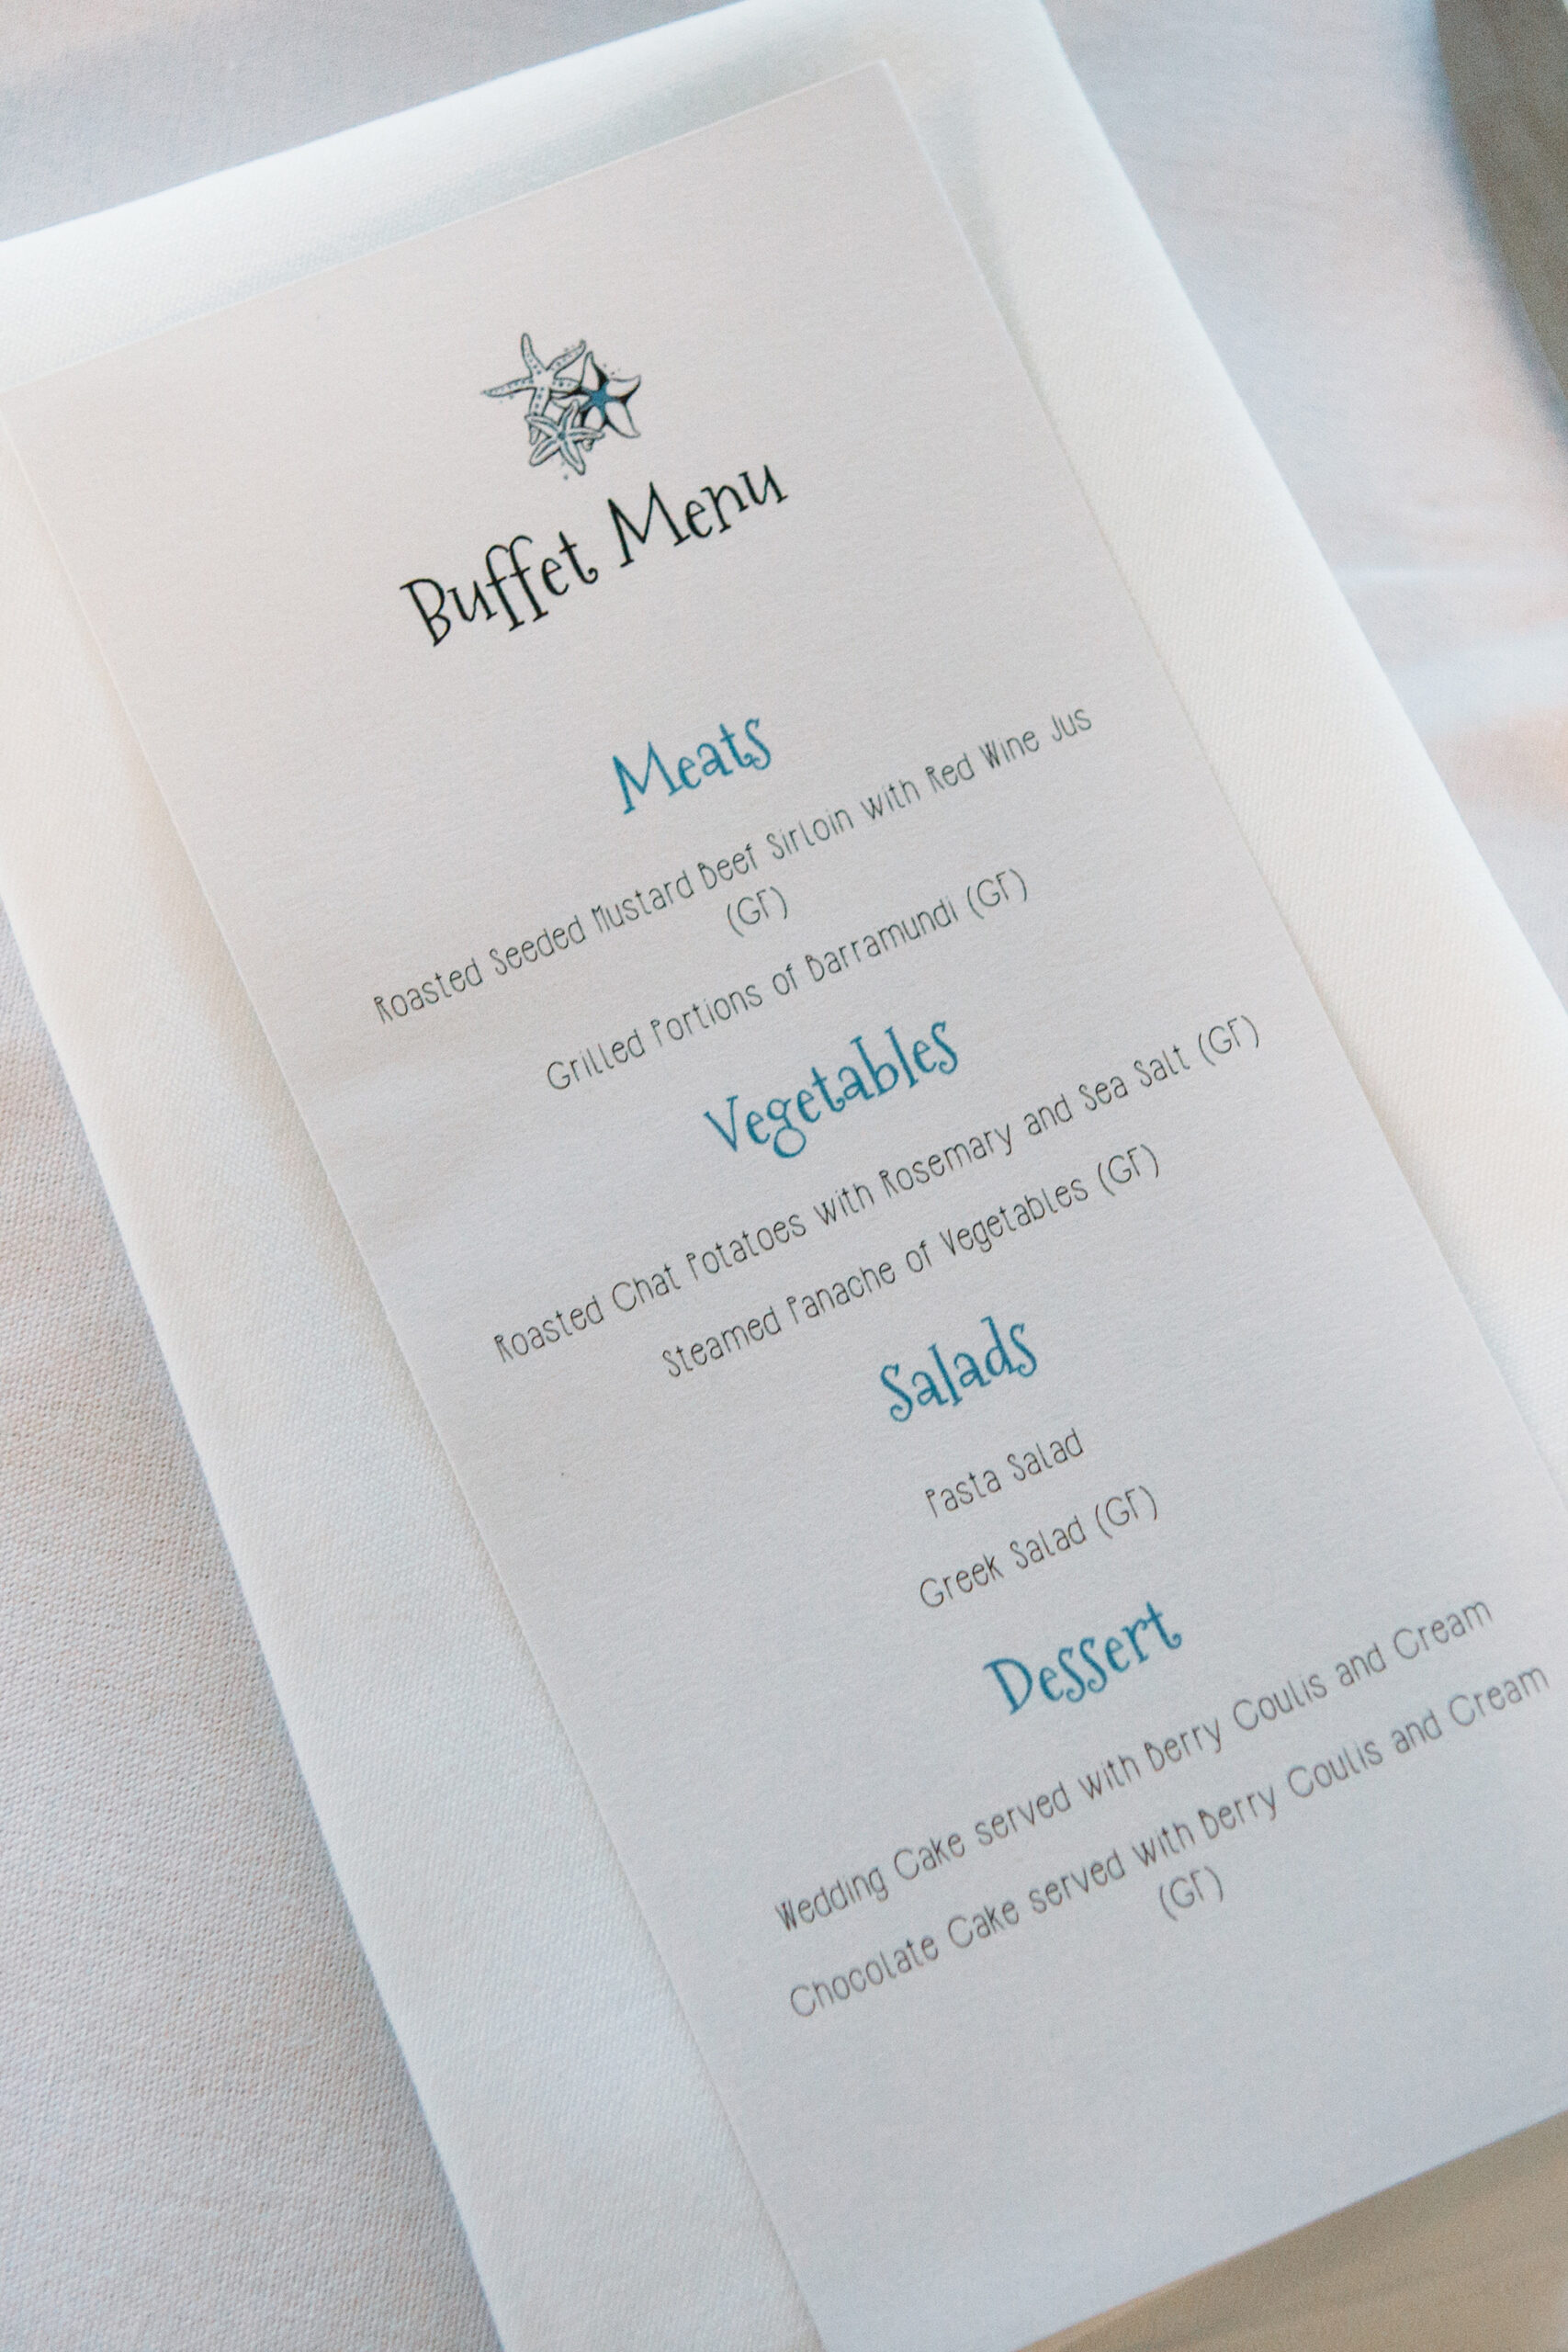 Buffet Menu
Meats
Roasted Seeded Mustard Beef Sirloin with Red Wine Jus
(GF)
Grilled Portions of Barramundi (GF)
Vegetables
Roasted Chat Potatoes with Rosemary and Sea Salt (GF)
Steamed Panache of Vegetables (GF)
Salads
Pasta Salad
Greek Salad (GF)
Dessert
Wedding Cake served with Berry Coulis and Cream
Chocolate Cake served with Berry Coulis and Cream
(GF)